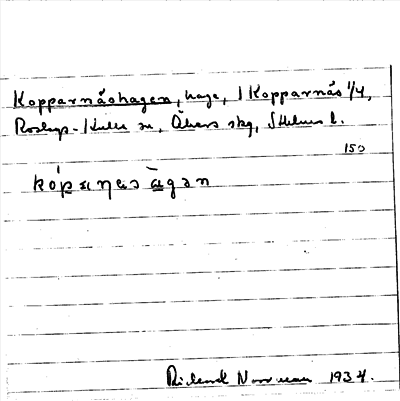 Kopparnäshagen, hage, i Kopparnäs 1/4,
Roslags-Kulla sn, Åkers skg, Sthlms l.
150
kópaṇas àgan
Rickard Norrman 1934.